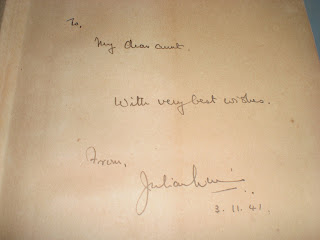 To,
My dear aunt.
With very best wishes.
From,
Julian
3. 11. 41.